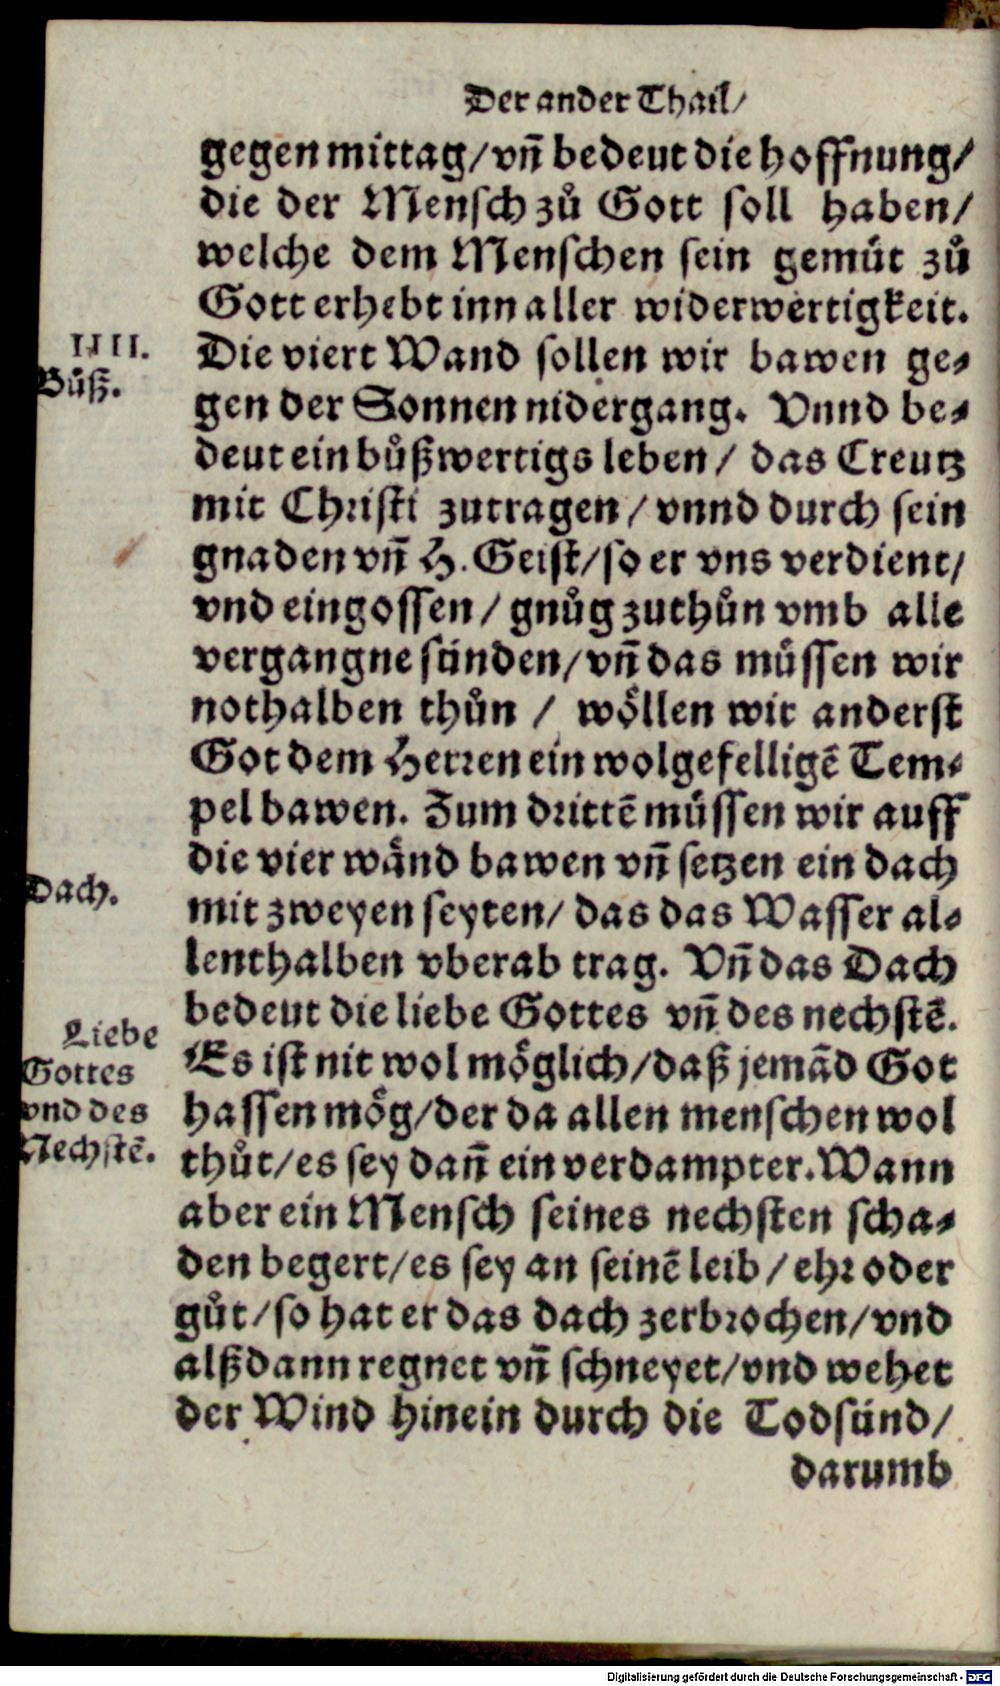 Der ander Thail/
gegen mittag/vñ bedeut die hoffnung/
die der Mensch zů Gott soll haben/
welche dem Menschen sein gemüt zů
Gott erhebt inn aller widerwertigkeit.
IIII.
Bůß.
Die viert Wand sollen wir bawen ge-
gen der Sonnen nidergang. Vnnd be-
deut ein bůßwertigs leben/ das Creutz
mit Christi zutragen/ vnnd durch sein
gnaden vñ H. Geist/so er vns verdient/
vnd eingossen/ gnůg zuthůn vmb alle
vergangne sünden/vñ das müssen wir
nothalben thůn / wöllen wir anderst
Got dem Herren ein wolgefelligẽ Tem-
pel bawen. Zum drittẽ müssen wir auff
die vier wänd bawen vñ setzen ein dach
Dach.
mit zweyen seyten/ das das Wasser al-
lenthalben vberab trag. Vñ das Dach
bedeut die liebe Gottes vñ des nechstẽ.
Liebe
Gottes
vnd des
Nechstẽ.
Es ist nit wol möglich/daß jemãd Got
hassen mög/der da allen menschen wol
thůt/es sey dañ ein verdampter. Wann
aber ein Mensch seines nechsten scha-
den begert/es sey an seinẽ leib/ehr oder
gůt/so hat er das dach zerbrochen/vnd
alßdann regnet vñ schneyet/vnd wehet
der Wind hinein durch die Todsünd/
darumb
Digitalisierung gefördert durch die Deutsche Forschungsgemeinschaft - DFG